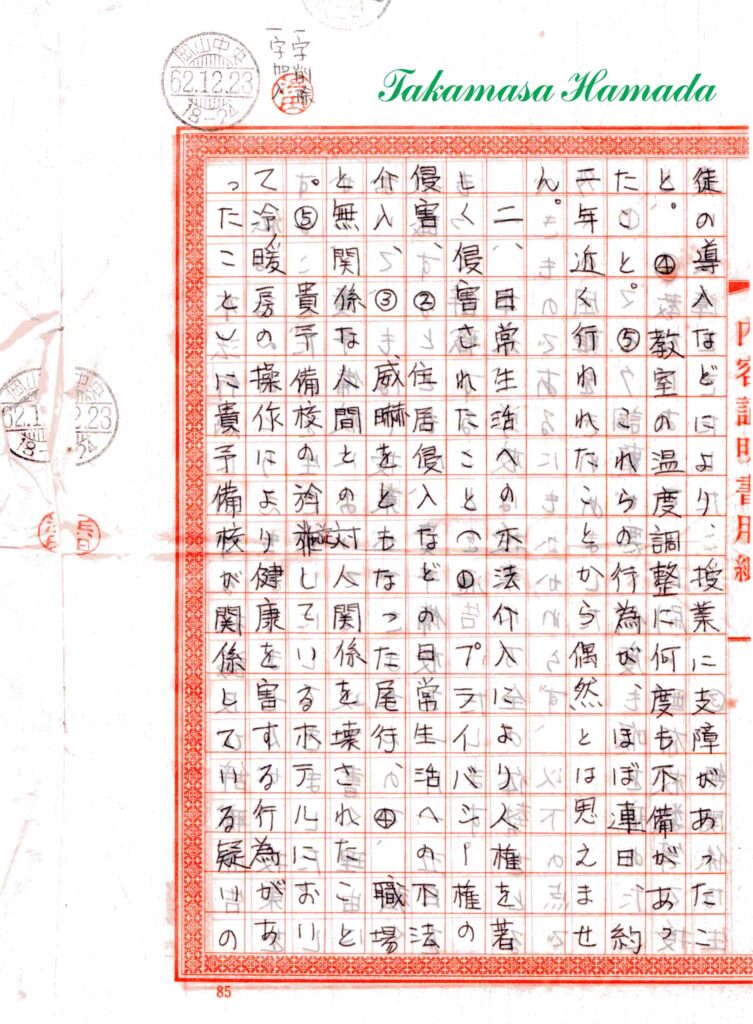 Takamasa Hamada
一字削除
一字加入
岡山中央
62.12.23
18-24
内容証明書用紙
徒の導入などにより、授業に支障があったこ
と。④教室の温度調整に何度も不備があっ
たこと。⑤これらの行為が、ほぼ連日、約
二年近く行われたことから偶然とは思えませ
ん。
二、日常生活への不法介入により人権を著
しく侵害されたこと(①プライバシー権の
侵害、②住居侵入などの日常生活への不法
介入、③威嚇をともなった尾行、④職場
と無関係な人間との対人関係を壊されたこと
。⑤貴予備校の斡旋しているホテルにおい
て冷暖房の操作により健康を害する行為があ
ったこと)に貴予備校が関係としている疑いの
岡山中央
62.12.23
18-24
85